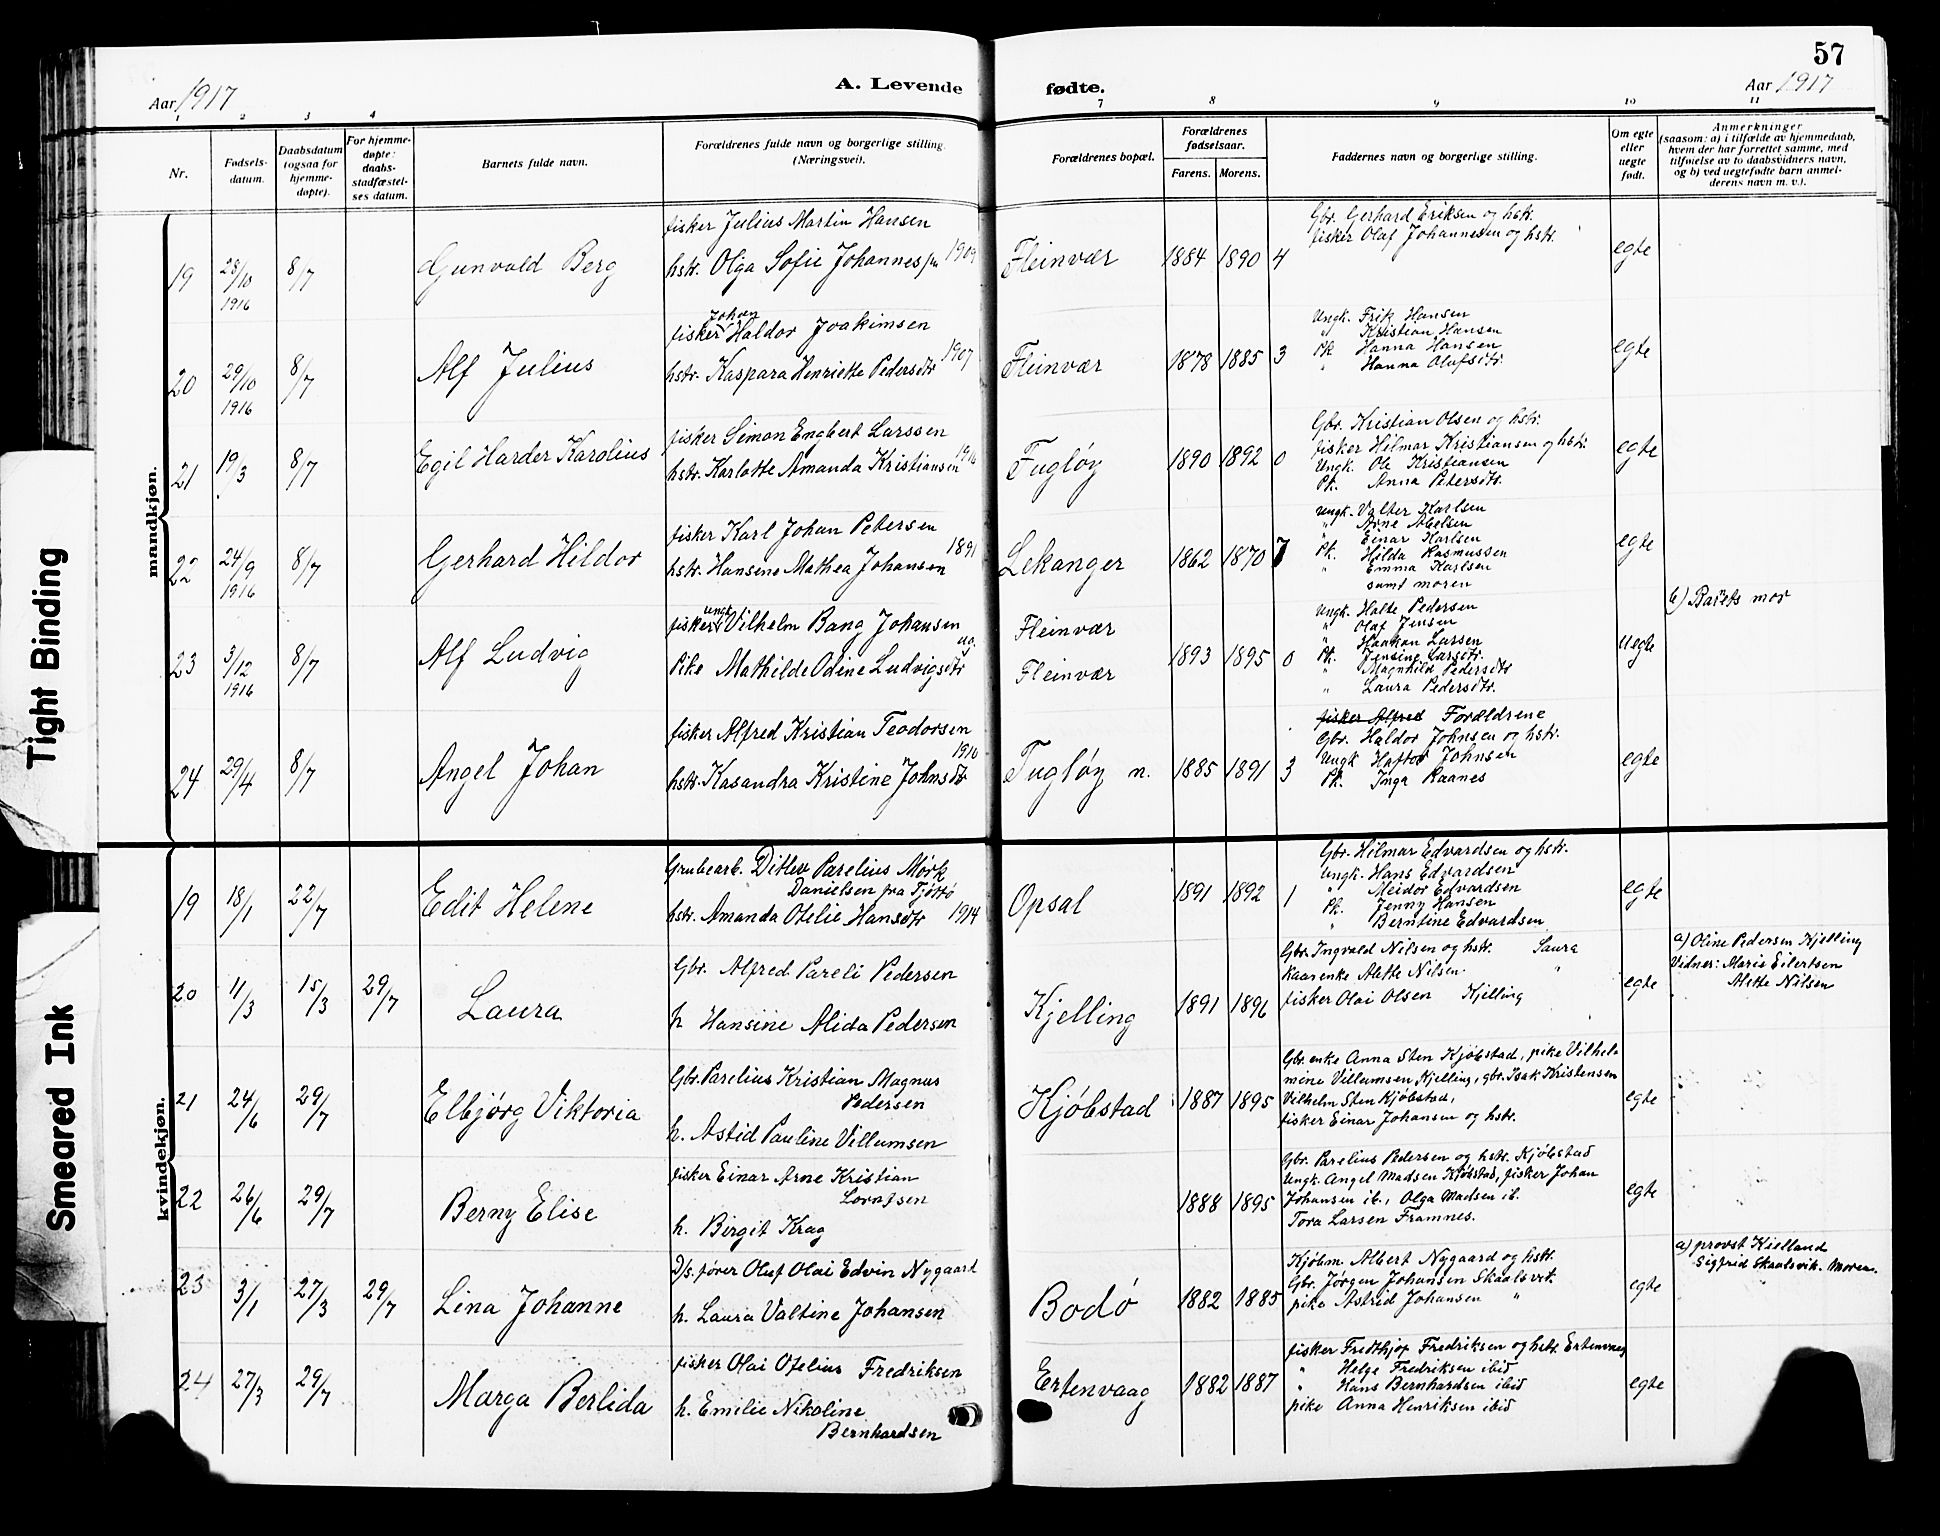 57
Aar 1917
A. Levende
fødte.
Aar 1917
1 2 3 4 7 8 9 10 11
Nr.
Fødsels-
datum.
Daabsdatum
(ogsaa for
hjemme-
døpte).
For hjemme-
døpte:
daabs-
stadfæstel-
ses datum.
Barnets fulde navn.
Forældrenes fulde navn og borgerlige stilling.
(Næringsvei).
Forældrenes bopæl.
Forældrenes
fødselsaar.
Farens. Morens.
Faddernes navn og borgerlige stilling.
Om egte
eller
uegte
født.
Anmerkninger
(saasom: a) i tilfælde av hjemmedaab,
hvem der har forrettet samme, med
tilføielse av to daabsvidners navn,
og b) ved uegtefødte barn anmel-
derens navn m. v.).
mandkjøn.
19 28/10 1916 8/7 Gunvald Berg
fisker Julius Martin Hansen
hstr. Olga Sofie Johannesen 1909
Fleinvær 1884 1890 4
Gbr. Gerhard Eriksen og hstr.
fisker Olaf Johannessen og hstr.
egte
20 29/10 1916 8/7 Alf Julius
Johan
fisker Haldor Joakimsen
hstr. Kaspara Henriette Pedersdtr 1907
Fleinvær 1878 1885 3
Ungk. Erik Hansen
" Kristian Hansen
Pk Hanna Hansen
" Hanna Olufsdtr.
egte
21 19/3 8/7 Egil Harder Karolius
fisker Simon Engbert Larssen
hstr. Karlotte Amanda Kristiansen 1916
Fugløy 1890 1892 0
Gbr. Kristian Olsen og hstr.
fisker Hilmar Kristiansen og hstr.
Ungk. Ole Kristiansen
Pk. Anna Petersdtr.
egte
22 24/9 1916 8/7 Gerhard Hildor
fisker Karl Johan Petersen
hstr. Hansine Mathea Johansen 1891
Lekanger 1862 1870 7
Ungk. Valter Karlsen
" Arne Abelsen
" Einar Karlsen
Pk. Hilda Rasmussen
" Emma Karlsen
samt moren
egte
23 3/12 1916 8/7 Alf Ludvig
ungk.
fisker Vilhelm Bang Johansen
ug.
Pike Mathilde Odine Ludvigsdtr
Fleinvær
Fleinvær
1893 1895 0
Ungk. Halte Pedersen
" Olaf Jensen
" Haakon Larsen
Pk. Jensine Larsdtr.
" Magnhild Pedersdtr
" Laura Pedersdtr.
uegte
b) Barets mor
24 29/4 8/7 Angel Johan
fisker Alfred Kristian Teodorsen
1910
hstr. Kasandra Kristine Johnsdtr
Fugløy n. 1885 1891 3
fisker Alfred Forældrene
Gbr. Haldor Johnsen og hstr.
Ungk Haftor Johnsen
Pk. Inga Raanes
egte
kvindekjøn.
19 18/1 22/7 Edit Helene
Grubearb. Ditlev Parelius Mørk
Danielsen fra Tjøtto
hstr. Amanda Otelie Hansdtr 1914
Opsal 1891 1892 1
Gbr. Hilmar Edvardsen og hstr.
Ungk. Hans Edvardsen
" Meidor Edvardsen
Pk. Jenny Hansen
" Berntine Edvardsen
egte
20 11/3 15/3 29/7 Laura
Gbr. Alfred Pareli Pedersen
h Hansine Alida Pedersen
Kjelling 1891 1896
Gbr. Ingvald Nilsen og hstr. Saura
Kaarenke Alette Nilsen "
fisker Olai Olsen Kjelling
egte
a) Oline Pedersen Kjelling
Vidner: Marie Eilertsen
Alette Nilsen
21 24/6 29/7 Elbjørg Viktoria
Gbr. Parelius Kristian Magnus
Pedersen
h. Astid Pauline Villumsen
Kjøbstad 1887 1895
Gbr. enke Anna Sten Kjøbstad, pike Vilhel-
mine Villumsen Kjelling, gbr. Isak Kristensen
Vilhelm Sten Kjøbstad,
fisker Einar Johansen og hstr.
egte
22 26/6 29/7 Berny Elise
fisker Einar Arne Kristian
Lorntsen
h. Birgit Krag
1888 1895
Gbr. Parelius Pedersen og hstr. Kjøbstad
Ungk. Angel Madsen Kjøbstad, fisker Johan
Johansen ib., Olga Madsen ib.
Tora Larsen Framnes.
egte
23 3/1 27/3 29/7 Lina Johanne
D/s. fører Oluf Olai Edvin Nygaard
h. Laura Valtine Johansen
Bodø 1882 1885
Kjøbm. Albert Nygaard og hstr.
Gbr. Jørgen Johansen Skaalsvik.
pike Astrid Johansen "
egte
a) provst Kielland
Sigfrid Skaalsvik. Moren.
24 27/3 29/7 Marga Berlida
fisker Olai Otelius Fredriksen
h. Emilie Nikoline
Bernhardsen
Ertenvaag 1882 1887
fisker Fredthjof Fredriksen og hstr. Ertenvaag
" Helge Fredriksen ibid
" Hans Bernhardsen ibid
pike Anna Henriksen ibid
egte
Tight Binding
Smeared Ink